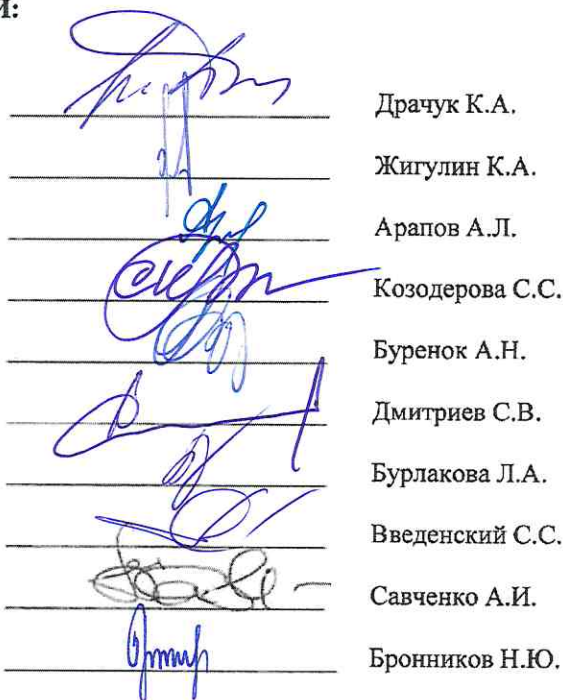 Драчук К.А.
Жигулин К.А.
Арапов А.Л.
Козодерова С.С.
Буренок А.Н.
Дмитриев С.В.
Бурлакова Л.А.
Введенский С.С.
Савченко А.И.
Бронников Н.Ю.